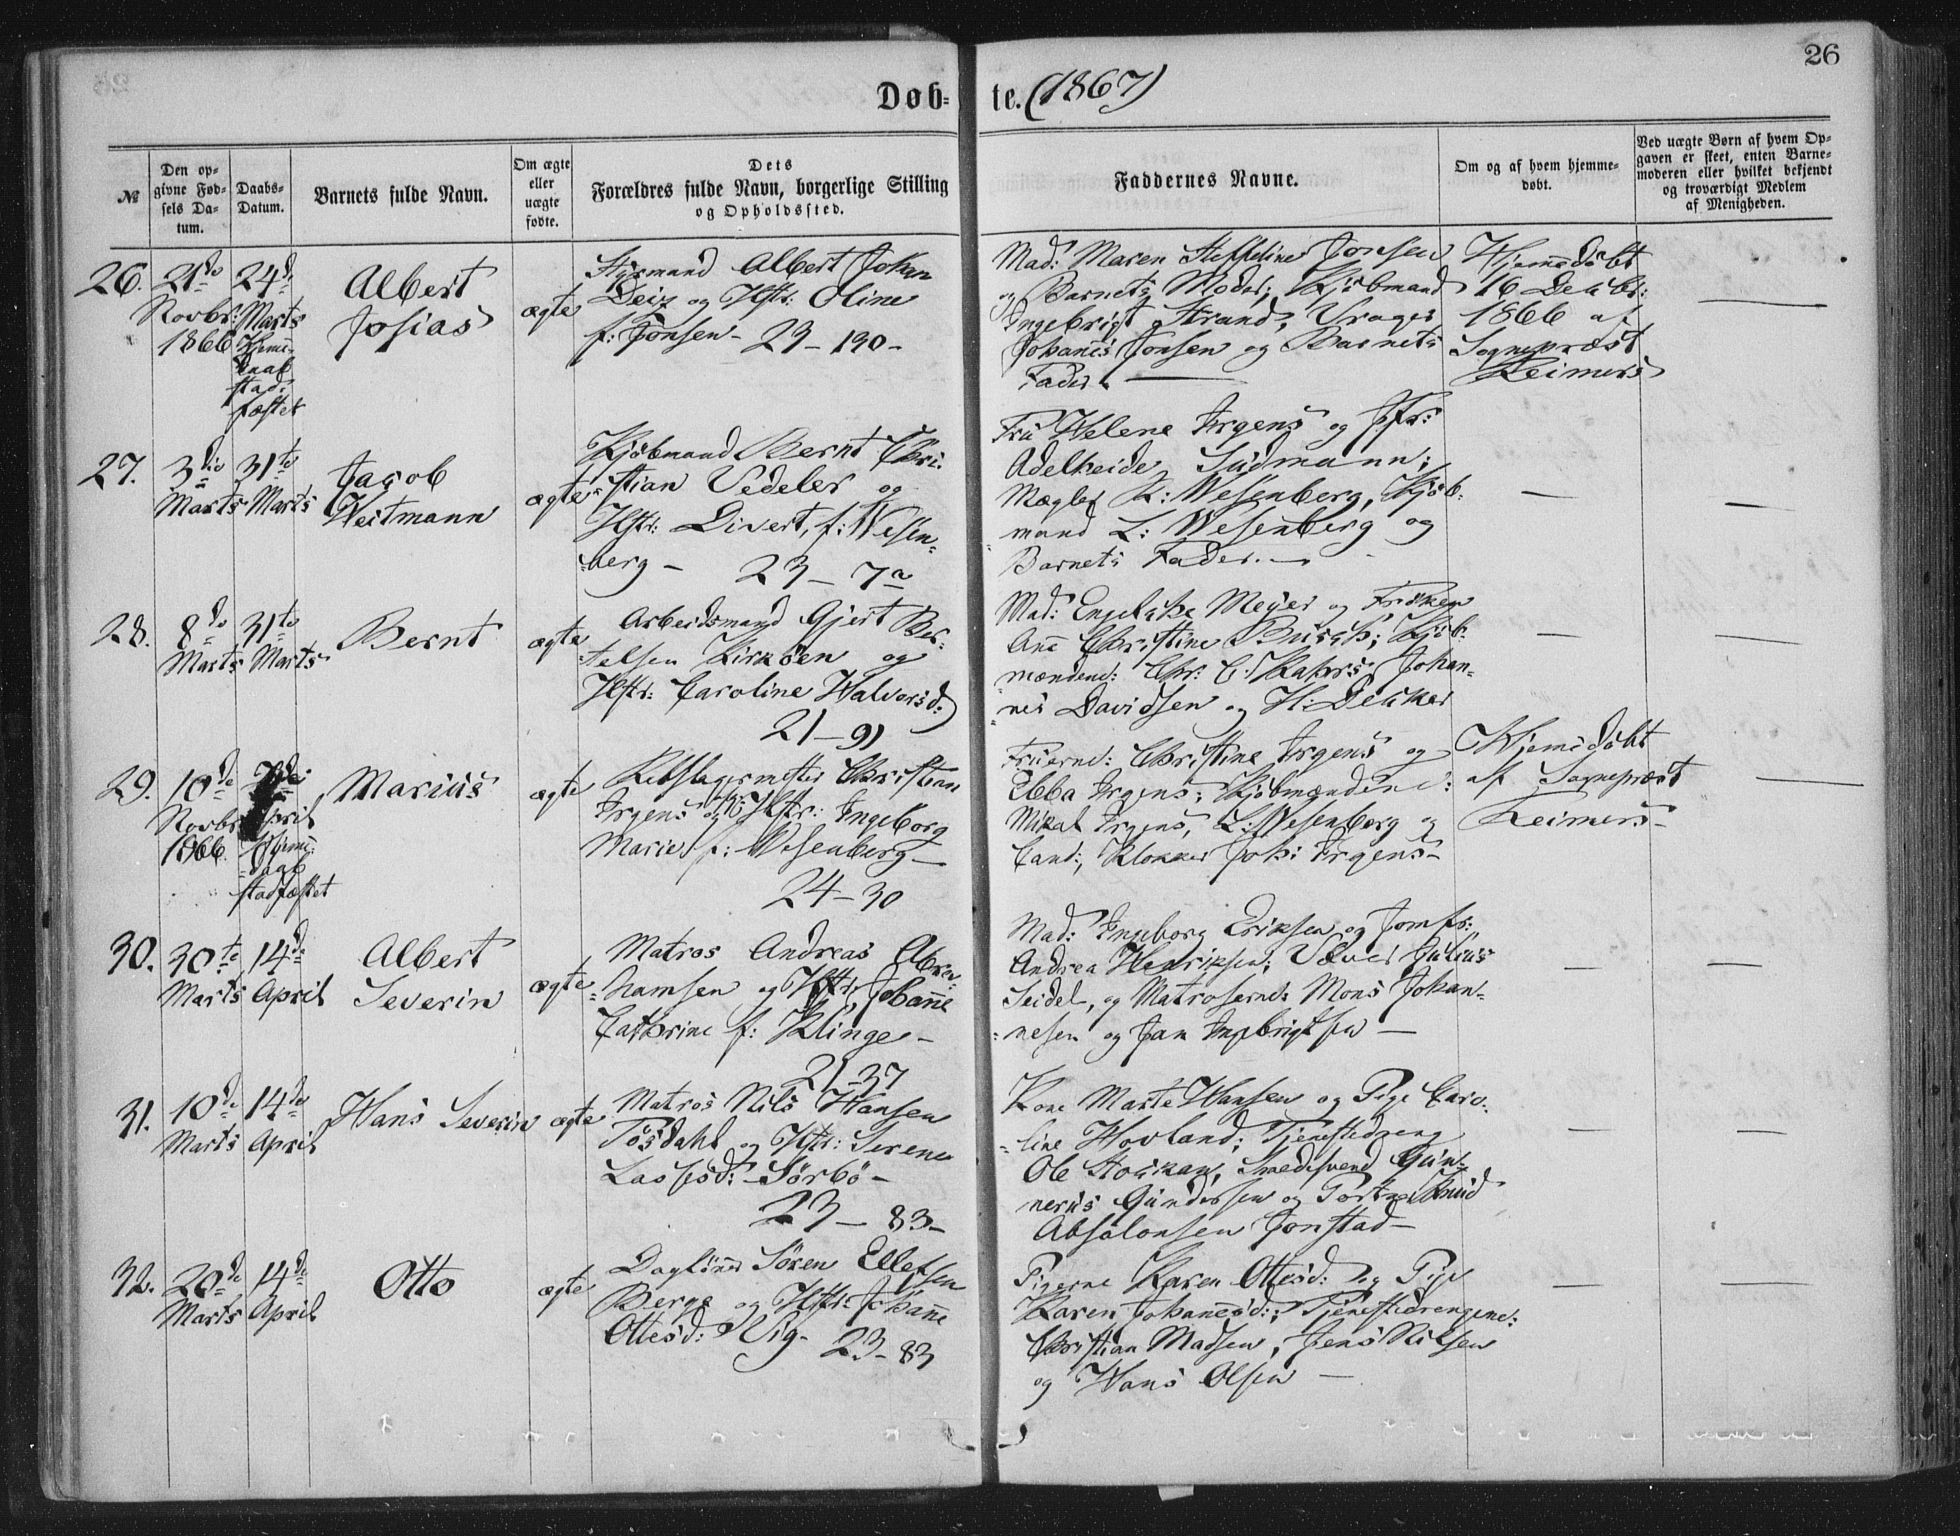 26
Døb-te. (1867)
№
Den opgivne Fødsels Datum.
Daabs-Datum.
Barnets fulde Navn.
Om ægte eller uægte fødte.
Dets Forældres fulde Navn, borgerlige Stilling og Opholdssted.
Faddernes Navne.
Om og af hvem hjemmedøbt.
Ved uægte Børn af hvem Opgaven er skeet, enten Barnemoderen eller hvilket bekjendt og troværdigt Medlem af Menigheden.
26.
21de
Novbr:
1866
24de
Marts
Hjemme-
daab
stad-
fæstet
Albert
Josias
ægte
Styrmand Albert Johan
Deiz og Hstr: Oline
f: Jonsen - 23 - 190 -
Mad: Maren Steffeline Jonsen
og Barnets Moder; Kjøbmand
Ingebrigt Strand, Vrager
Johanes Jonsen og Barnets
Fader. —
Hjemedøbt
16 Decbr:
1866 af
Sognepræst
Reimers
27.
3die
Marts
31te
Marts
Jacob
Weitmann
ægte
Kjøbmand Bernt Chri-
stian Vedeler og
Hstr: Divert, f: Wesen-
berg - 23 - 7a
Fru Helene Irgens og Jfr:
Adelheide Sudmann;
Mægler K: Wesenberg, Kjøb-
mand L: Wesenberg og
Barnets Fader. —
28.
8de
Marts
31te
Marts
Bernt
ægte
Arbeidsmand Gjert Ber-
telsen Kirkøen og
Hstr: Caroline Halvorsd:
21 - 91
Mad: Engelche Meyer og Frøken
Ane Christine Busch; Kjøb-
mændene: Chr: C: Kahrs, Johan-
nes Davidsen og H: Dekker
29.
10de
Novbr
1866.
7de
April
Hjeme-
daab
stadfæstet
Marius
ægte
Rebslagermester Christian
Irgens og Hstr: Ingeborg
Marie, f: Wesenberg -
24 - 30
Fruerne: Christine Irgens og
Ebba Irgens; Kjøbmændene:
Mikal Irgens, L: Wesenberg og
Cand:, Klokker Joh: Irgens -
Hjemedøbt
af Sognepræst
Reimers -
30.
30te
Marts
14de
April
Albert
Severin
ægte
Matros Andreas Abra-
hamsen og Hstr: Johanne
Cathrine f: Klinge -
21 - 37
Mad: Ingeborg Eriksen og Jomfr:
Andrea Henriksen; Væver Julius
Seidel, og Matroserne: Mons Johan-
nesen og Jan Ingebrigtsen —
31.
10de
Marts
14de
April
Hans Severin
ægte
Matros Nils Hansen
Tøsdahl og Hstr: Serene
Lassesd: Sørbø -
23 - 83 -
Kone Marte Hansen og Pige Caro-
line Hovland; Tjenestedreng
Ole Smedesvend Gun-
nerius Gundersen og Knud
Absalonsen Jonstad -
32.
20de
Marts
14de
April
Otto
ægte
Dagløner Søren Ellefsen
Berge og Hstr: Johanne
Ottesd: Vig - 23 - 83
Pigerne Karen Ottesd: og Pige
Karen Johanesd:; Tjenestedrengene:
Christian Madsen, Jens Nilsen
og Hans Olsen —